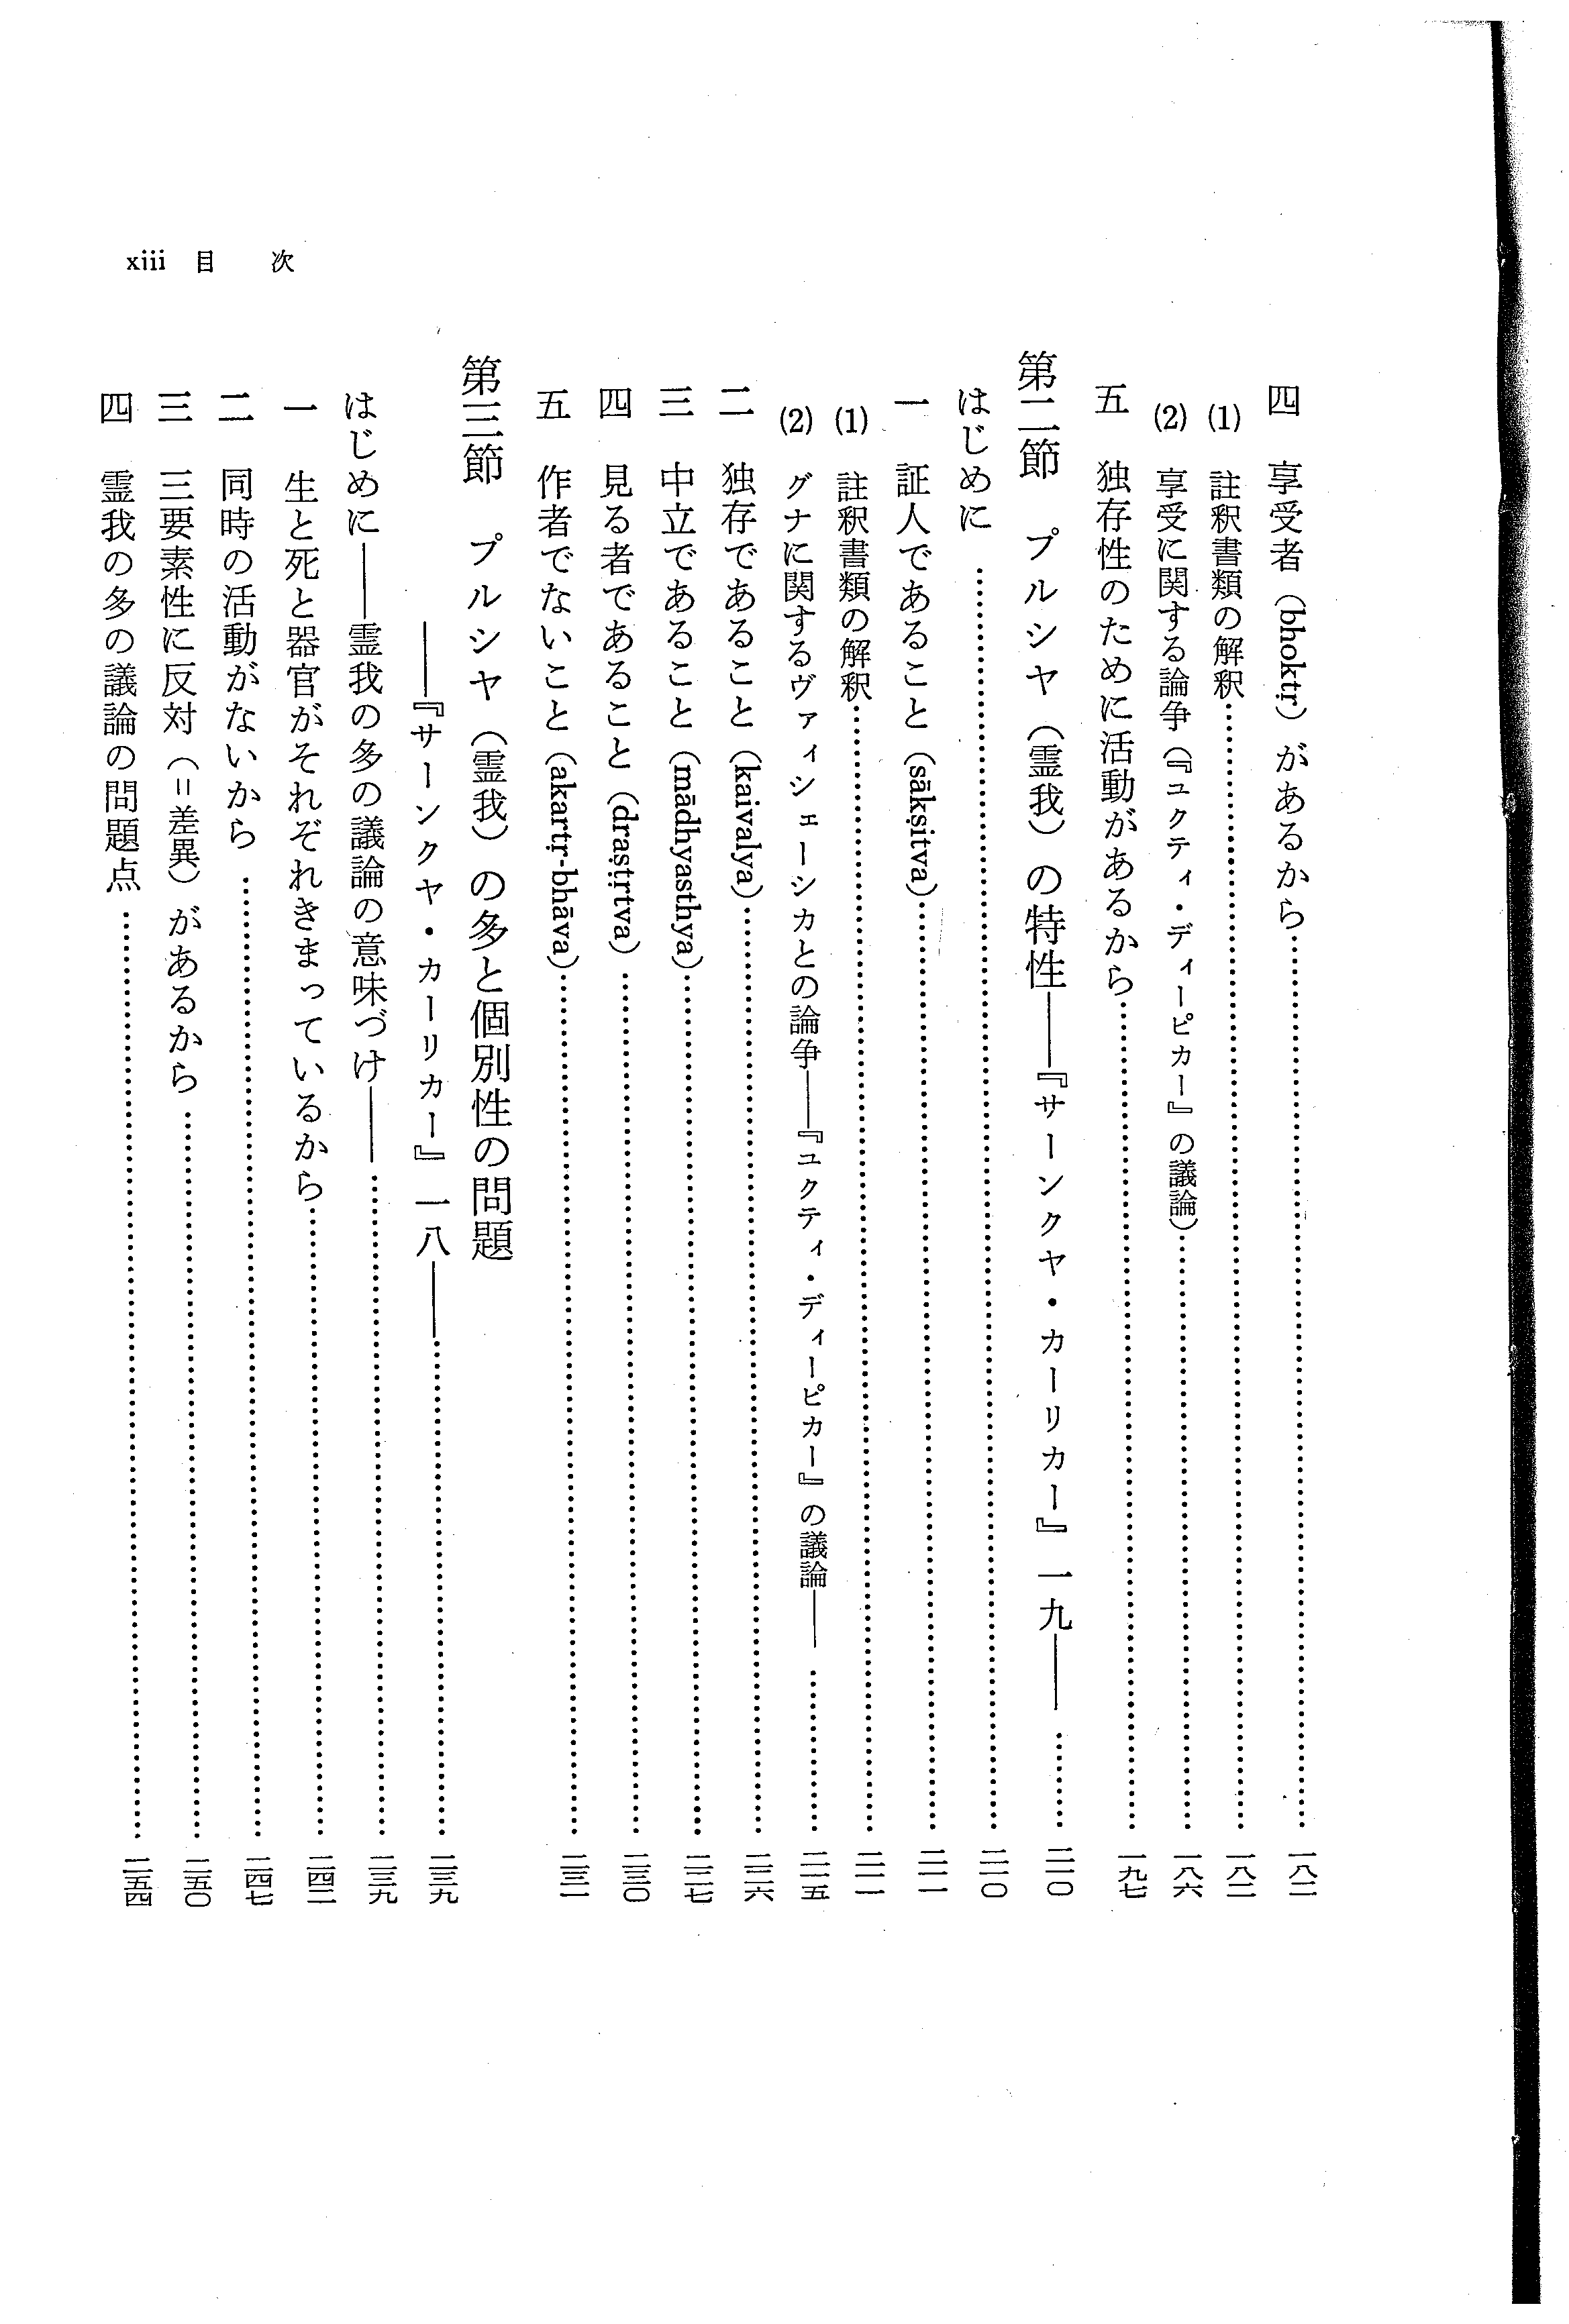 xiii 目 次
四 享受者（bhoktṛ）があるから……一八二
(1) 註釈書類の解釈……一八二
(2) 享受に関する論争（『ユクティ・ディーピカー』の議論）……一八六
五 独存性のために活動があるから……一九七
第二節 プルシャ（霊我）の特性――『サーンクヤ・カーリカー』一九――……二一〇
はじめに……二一〇
一 証人であること（sākṣitva）……二一一
(1) 註釈書類の解釈……二一一
(2) グナに関するヴァイシェーシカとの論争――『ユクティ・ディーピカー』の議論――……二一五
二 独存であること（kaivalya）……二二六
三 中立であること（mādhyasthya）……二二七
四 見る者であること（draṣṭṛtva）……二三〇
五 作者でないこと（akartṛ-bhāva）……二三一
第三節 プルシャ（霊我）の多と個別性の問題
――『サーンクヤ・カーリカー』一八――……二三九
はじめに――霊我の多の議論の意味づけ――……二三九
一 生と死と器官がそれぞれきまっているから……二四二
二 同時の活動がないから……二四七
三 三要素性に反対（＝差異）があるから……二五〇
四 霊我の多の議論の問題点……二五四